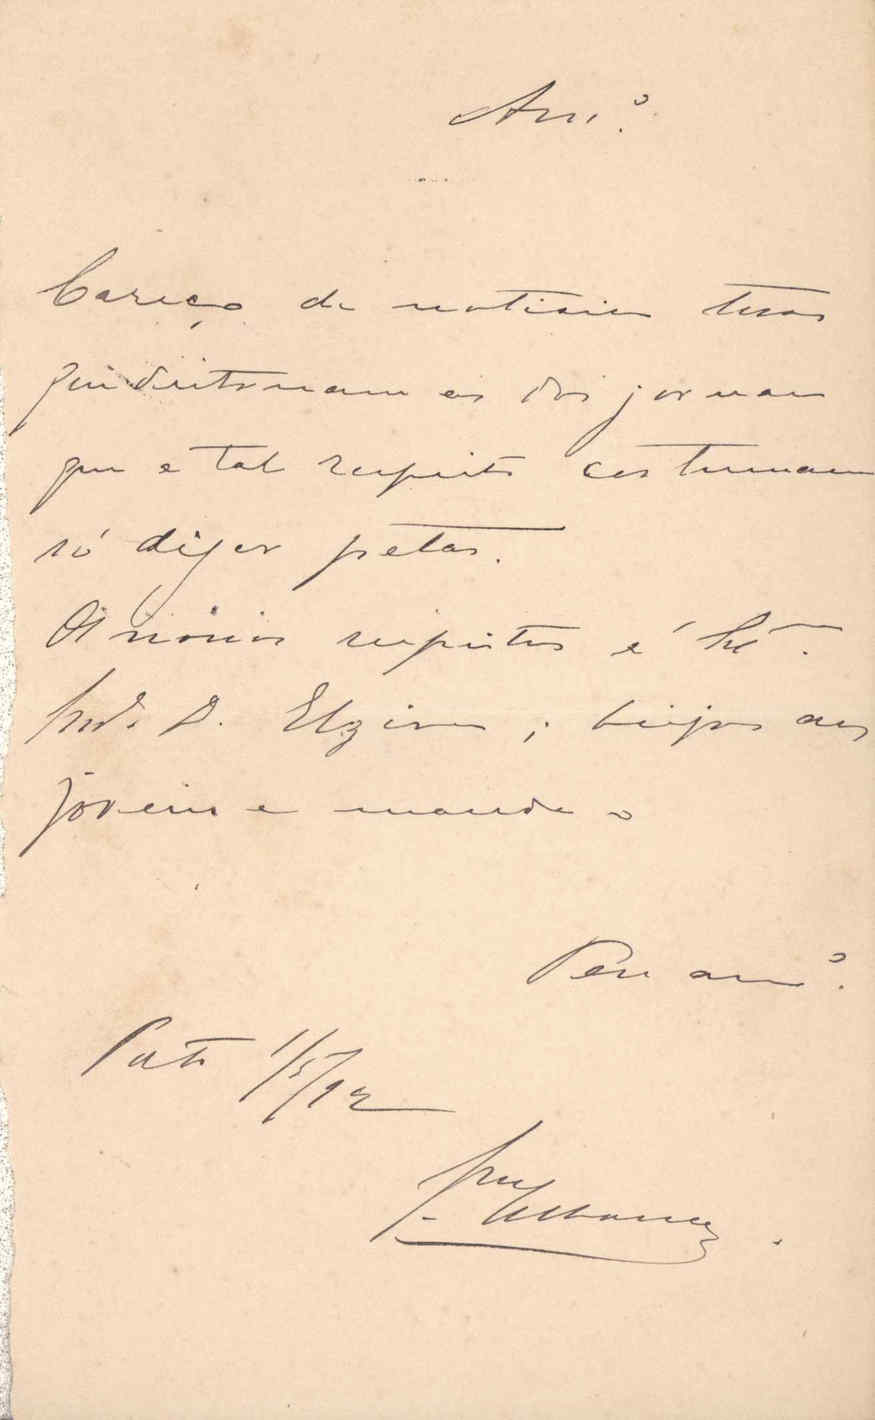 Amº.
Careço de noticias tuas
que destoam das dos jornaes
que a tal respeito costumam
só dizer petas.
Os nossos respeitos á
D. Elzira; beijos aos
jovens e manda o
Teu amº.
Pati 1/5/92